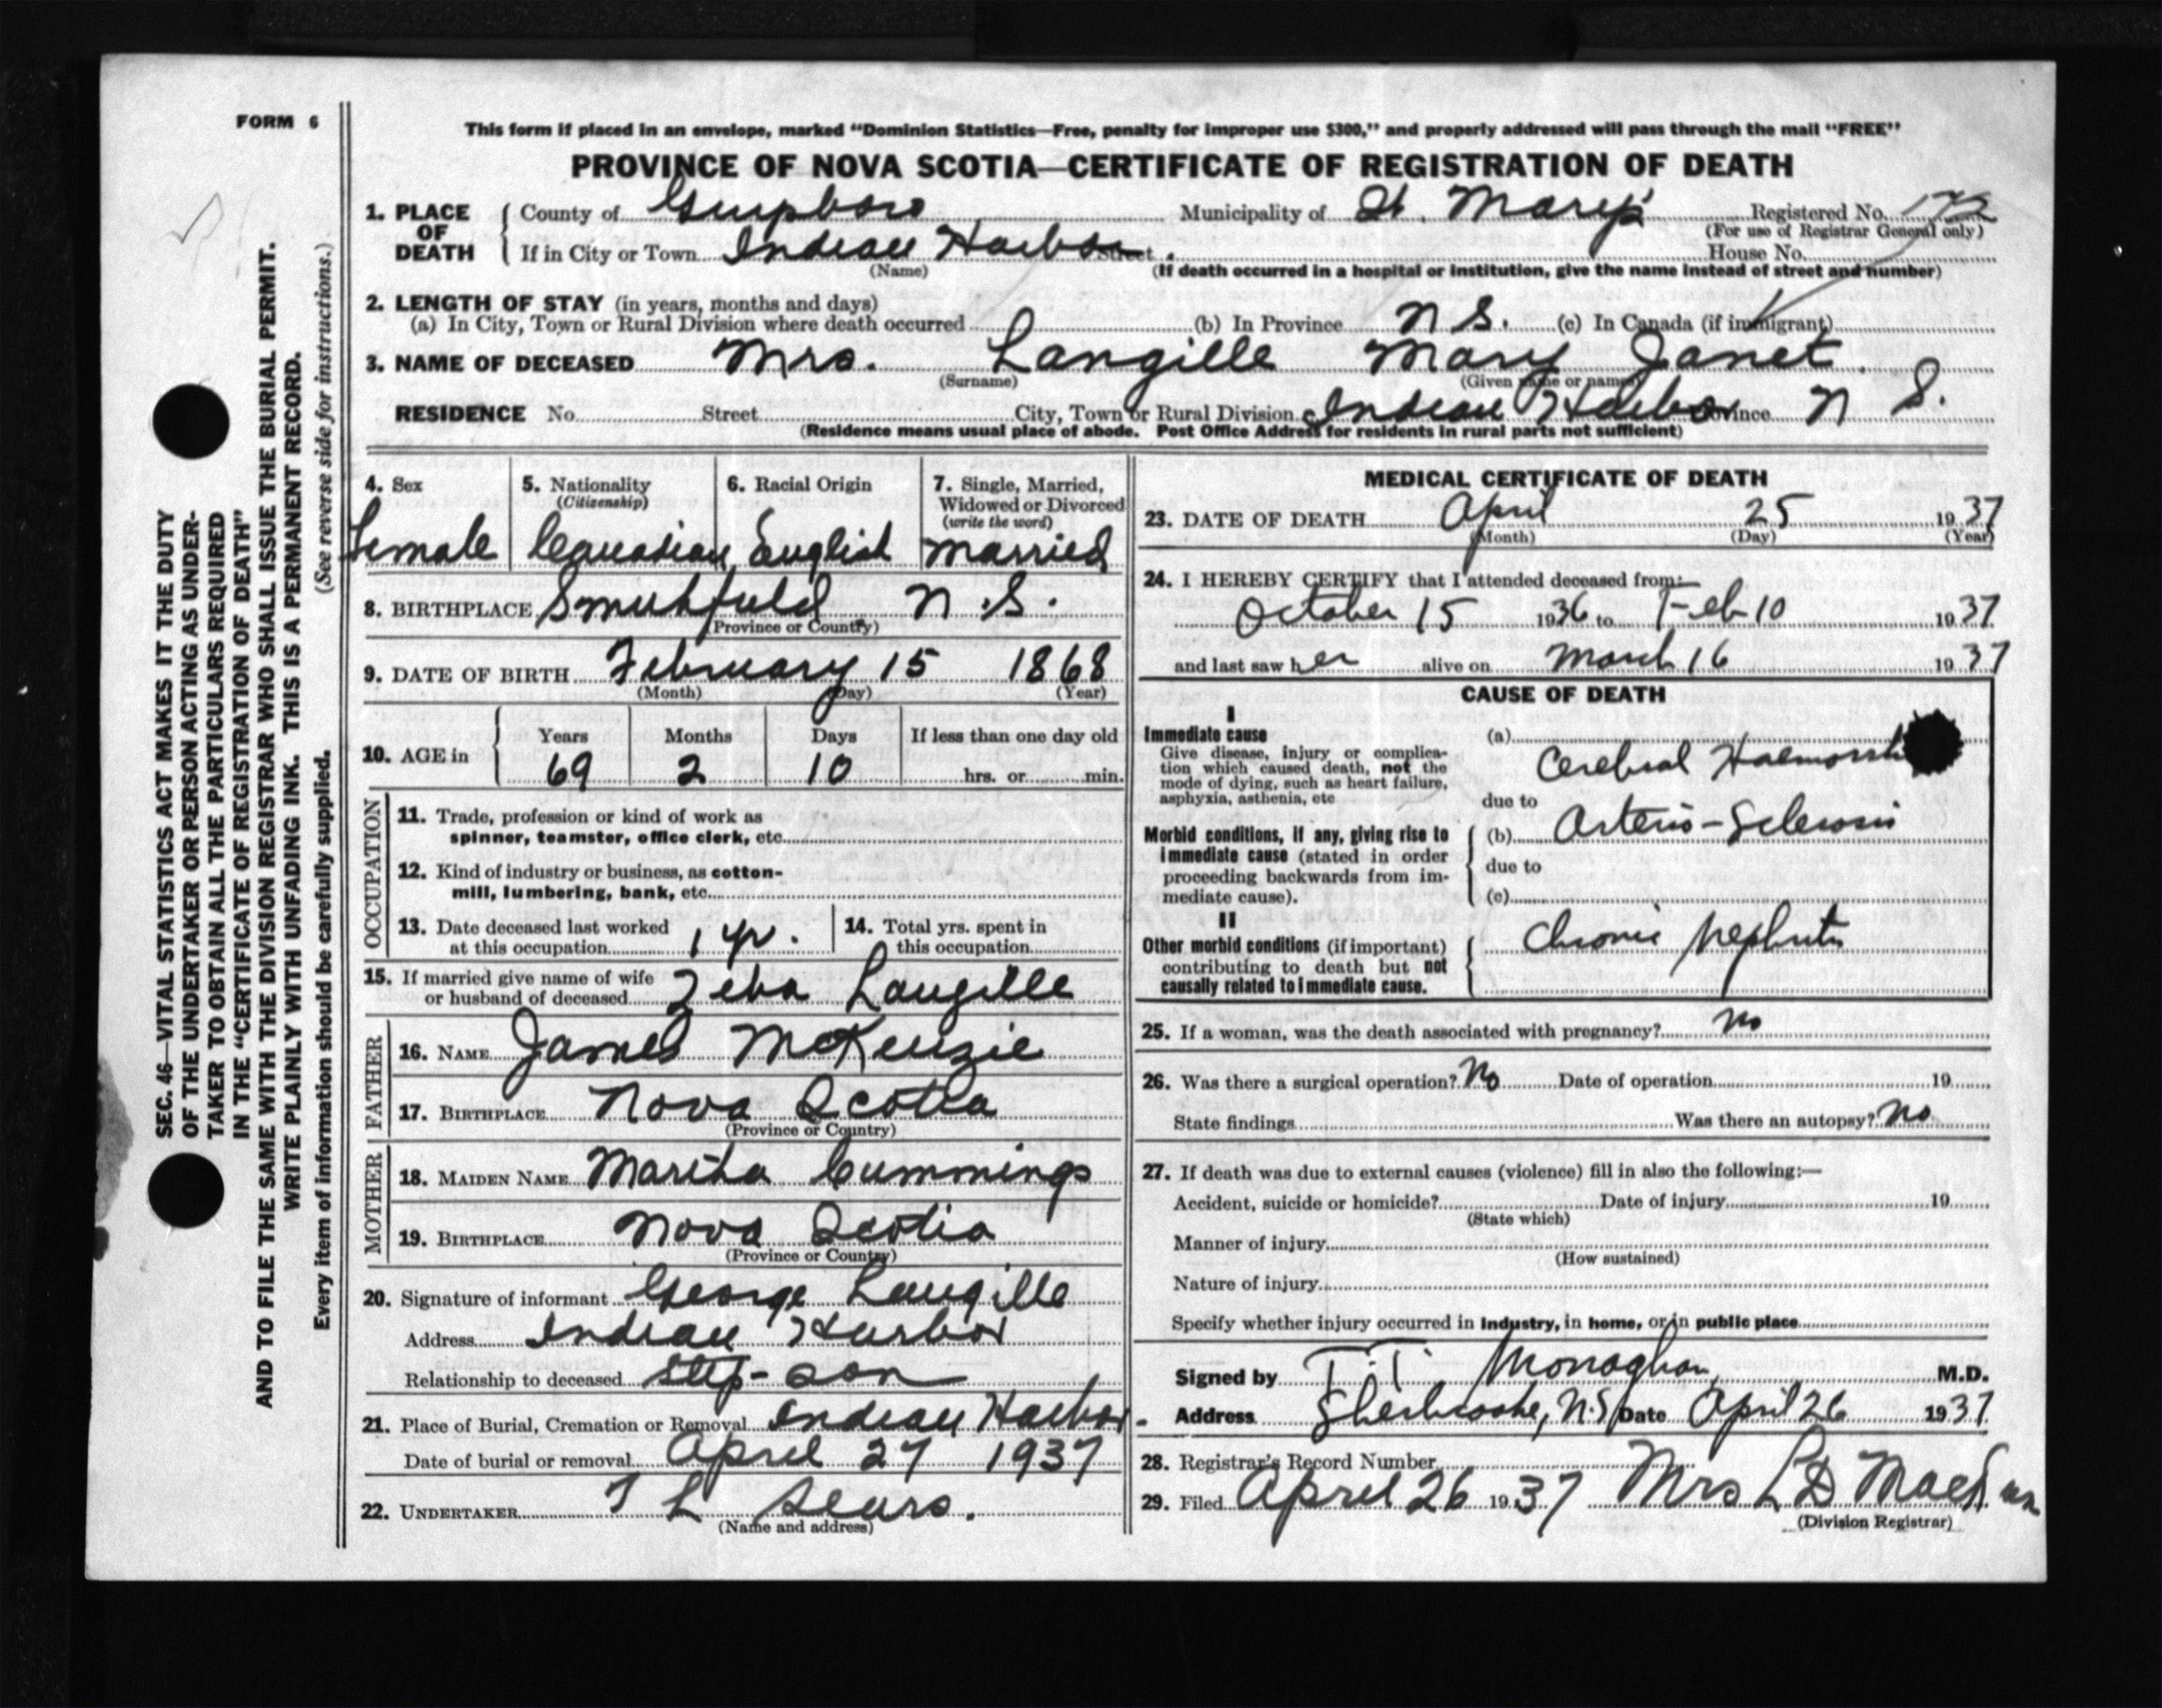 FORM 6
This form if placed in an envelope, marked "Dominion Statistics—Free, penalty for improper use $300," and properly addressed will pass through the mail "FREE"
PROVINCE OF NOVA SCOTIA—CERTIFICATE OF REGISTRATION OF DEATH
1. PLACE OF DEATH County of Guysboro Municipality of St. Mary's Registered No. 172
(For use of Registrar General only)
If in City or Town Indian Harbor Street House No.
(Name) (If death occurred in a hospital or institution, give the name instead of street and number)
2. LENGTH OF STAY (in years, months and days)
(a) In City, Town or Rural Division where death occurred (b) In Province N S. (c) In Canada (if immigrant)
3. NAME OF DECEASED Mrs. Langille Mary Janet
(Surname) (Given name or names)
RESIDENCE No. Street City, Town or Rural Division Indian Harbor Province N S.
(Residence means usual place of abode. Post Office Address for residents in rural parts not sufficient)
4. Sex
Female
5. Nationality
(Citizenship)
Canadian
6. Racial Origin
English
7. Single, Married, Widowed or Divorced
(write the word)
Married
8. BIRTHPLACE Smithfield N.S.
(Province or Country)
9. DATE OF BIRTH February 15 1868
(Month) (Day) (Year)
10. AGE in Years Months Days If less than one day old
69 2 10 hrs. or min.
OCCUPATION
11. Trade, profession or kind of work as
spinner, teamster, office clerk, etc.
12. Kind of industry or business, as cotton-
mill, lumbering, bank, etc.
13. Date deceased last worked
at this occupation 1 yr.
14. Total yrs. spent in
this occupation
15. If married give name of wife
or husband of deceased Zeba Langille
FATHER
16. NAME James McKenzie
17. BIRTHPLACE Nova Scotia
(Province or Country)
MOTHER
18. MAIDEN NAME Martha Cummings
19. BIRTHPLACE Nova Scotia
(Province or Country)
20. Signature of informant George Langille
Address Indian Harbor
Relationship to deceased step-son
21. Place of Burial, Cremation or Removal Indian Harbor
Date of burial or removal April 27 1937
22. UNDERTAKER L Sears.
(Name and address)
MEDICAL CERTIFICATE OF DEATH
23. DATE OF DEATH April 25 1937
(Month) (Day) (Year)
24. I HEREBY CERTIFY that I attended deceased from:—
October 15 1936 to Feb 10 1937
and last saw her alive on March 16 1937
CAUSE OF DEATH
I
Immediate cause
Give disease, injury or complica-
tion which caused death, not the
mode of dying, such as heart failure,
asphyxia, asthenia, etc
(a) Cerebral
due to
Morbid conditions, if any, giving rise to
immediate cause (stated in order
proceeding backwards from im-
mediate cause).
(b) Arterio-Sclerosis
due to
(c)
II
Other morbid conditions (if important)
contributing to death but not
causally related to immediate cause.
Chronic Nephritis
25. If a woman, was the death associated with pregnancy? No
26. Was there a surgical operation? No Date of operation 19
State findings Was there an autopsy? No
27. If death was due to external causes (violence) fill in also the following:—
Accident, suicide or homicide? Date of injury 19
(State which)
Manner of injury
(How sustained)
Nature of injury
Specify whether injury occurred in industry, in home, or in public place
Signed by T. T. Monaghan M.D.
Address Sherbrooke, N.S. Date April 26 1937
28. Registrar's Record Number
29. Filed April 26 1937 Mrs L D
(Division Registrar)
SEC. 46—VITAL STATISTICS ACT MAKES IT THE DUTY
OF THE UNDERTAKER OR PERSON ACTING AS UNDER-
TAKER TO OBTAIN ALL THE PARTICULARS REQUIRED
IN THE "CERTIFICATE OF REGISTRATION OF DEATH"
AND TO FILE THE SAME WITH THE DIVISION REGISTRAR WHO SHALL ISSUE THE BURIAL PERMIT.
WRITE PLAINLY WITH UNFADING INK. THIS IS A PERMANENT RECORD.
Every item of information should be carefully supplied. (See reverse side for instructions.)